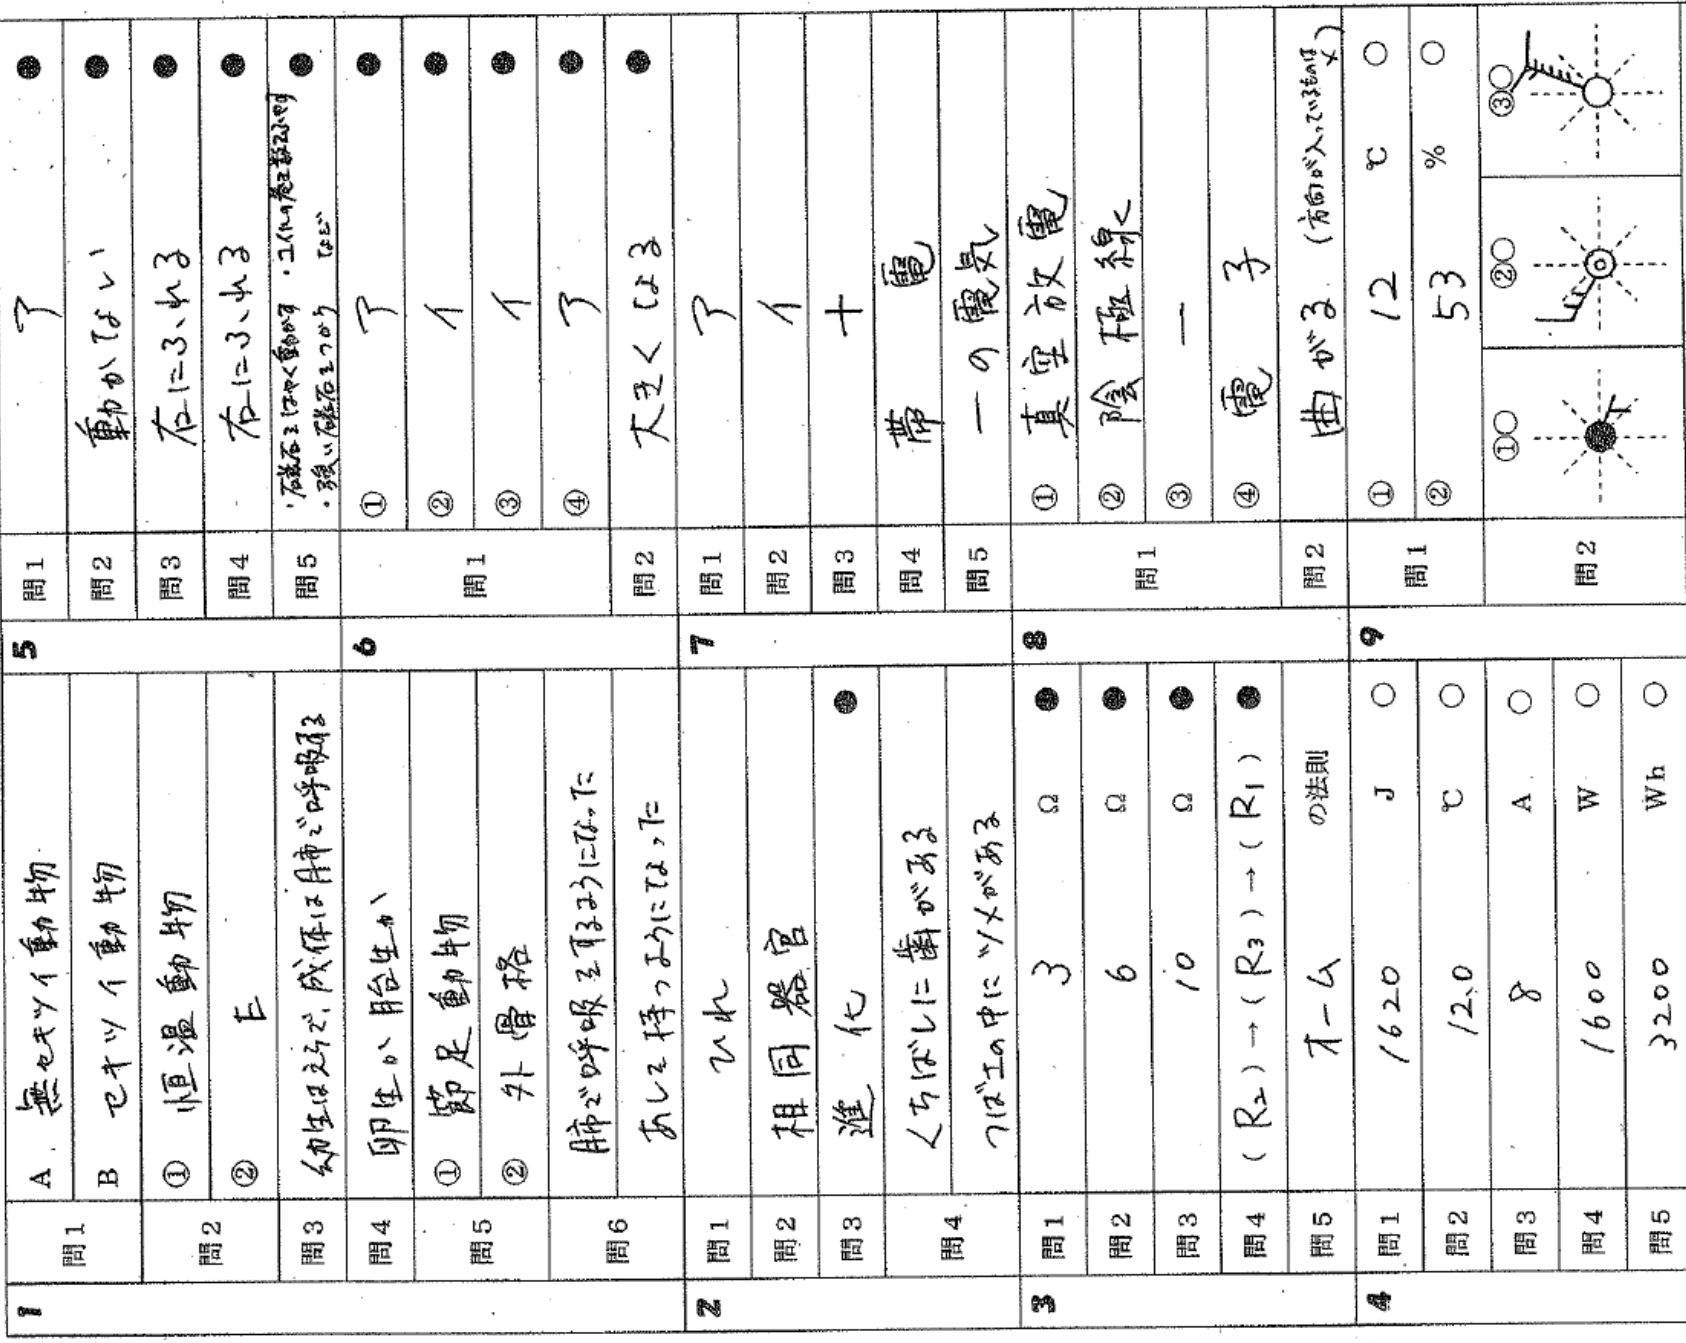 1
問1 A 無セキツイ動物
B セキツイ動物
問2 ① 恒温動物
② E
問3 幼生はえらで、成体は肺で呼吸する
問4 卵生か胎生か
問5 ① 節足動物
② 外骨格
問6 肺で呼吸をするようになった
あしを持つようになった
2
問1 ひれ
問2 相同器官
問3 進化 ●
問4 くちばしに歯がある
つばさの中にツメがある
3
問1 3 Ω ●
問2 6 Ω ●
問3 10 Ω ●
問4 (R2)→(R3)→(R1) ●
問5 オーム の法則
4
問1 1620 J ○
問2 12.0 ℃ ○
問3 8 A ○
問4 1600 W ○
問5 3200 Wh ○
5
問1 ア ●
問2 動かない ●
問3 右にふれる ●
問4 右にふれる ●
問5 ・磁石をはやく動かす ・コイルの巻き数をふやす ●
・強い磁石をつかう など
6
問1 ① ア ●
② イ ●
③ イ ●
④ ア ●
問2 大きくなる ●
7
問1 ア
問2 イ
問3 +
問4 帯電
問5 −の電気
8
問1 ① 真空放電
② 陰極線
③ −
④ 電子
問2 曲がる (方向が入っているものは×)
9
問1 ① 12 ℃ ○
② 53 % ○
問2 ①○ ②○ ③○